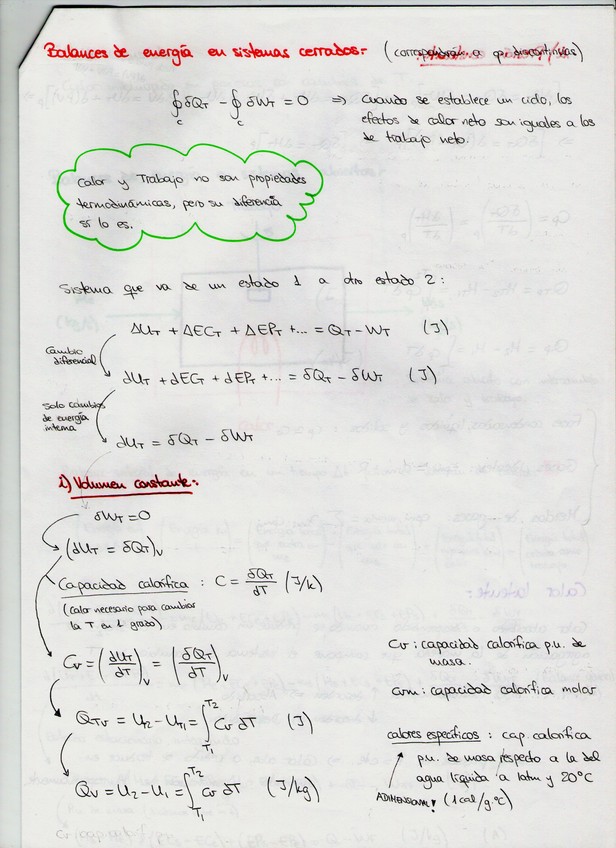 Balances de energía en sistemas cerrados:- (corresponderán a op. discontinuas)
∮c δQT - ∮c δWT = 0 ⇒ Cuando se establece un ciclo, los
efectos de calor neto son iguales a los
de trabajo neto.
Calor y Trabajo no son propiedades
termodinámicas, pero su diferencia
sí lo es.
Sistema que va de un estado 1 a otro estado 2:
ΔUT + ΔECT + ΔEPT + ... = QT - WT (J)
Cambio
diferencial
dUT + dECT + dEPT + ... = δQT - δWT (J)
Solo cambios
de energía
interna
dUT = δQT - δWT
1) Volumen constante:-
δWT = 0
(dUT = δQT)v
Capacidad calorífica : C = δQT/dT (J/K)
(Calor necesario para cambiar
la T en 1 grado)
Cv = (dUT/dT)v = (δQT/dT)v
QTV = UT2 - UT1 = ∫T1T2 Cv dT (J)
Qv = U2 - U1 = ∫T1T2 cv dT (J/kg)
Cv : capacidad calorífica p.u. de
masa.
Cvm : capacidad calorífica molar
calores específicos : cap. calorífica
p.u. de masa respecto a la del
agua líquida a 1atm y 20°C
ADIMENSIONAL! (1 cal/g.°C)